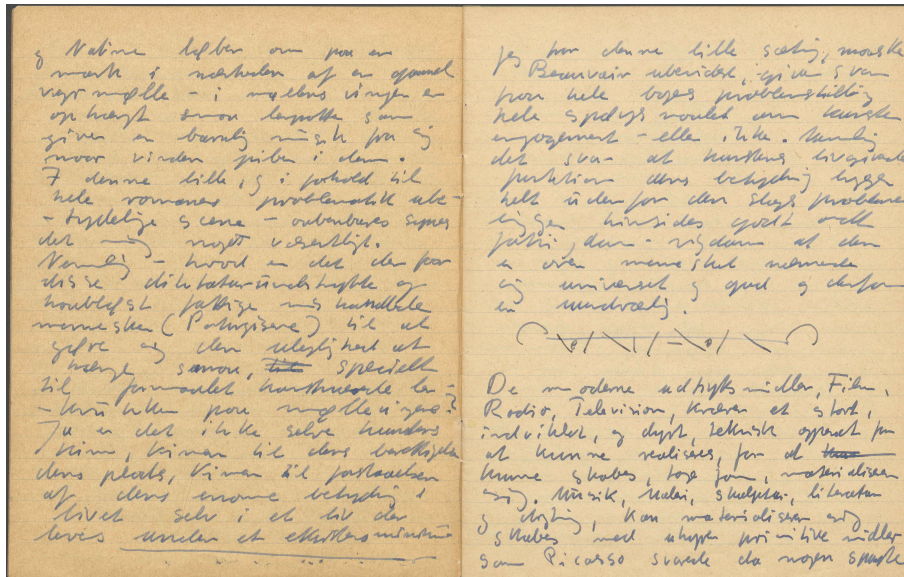 og Nadine løber om paa en
mark i nærheden af en gammel
vejrmølle – i møllens vinger er
ophængt smaa lerpotter som
giver en barnlig musik fra sig
naar vinden piber i dem.
I denne lille, og i forhold til
hele romanens problematik ube-
-tydelige scene – aabenbares synes
det mig noget væsentligt.
Nemlig – hvad er det der faar
disse diktaturundertrykte og
haabløst fattige mishandlede
mennesker (Portugisere) til at
gøre sig den ulejlighed at
hænge smaa, til specielt
til formaalet konstruerede ler-
-krukker paa møllevingerne?
Ja er det ikke selve kunstens
kim, kimen til dens berettigelse
dens plads, kimen til forstaaelsen
af dens enorme betydning i
livet selv i et liv der
leves under et eksistensminimum
jeg for denne lille sætning, maaske
Beauvoir uberidst, giver svar
paa hele bogens problemstilling
hele spørgsmaalet om kunstens
engagement – eller ikke. Nemlig
det svar at kunstens livgivende
funktion dens betydning ligger
helt udenfor den slags problemer
ligger hinsides godt ondt
at den
er over mennesket nærmede
sig universet og gud og derfor
er uundværlig.
De moderne udtryksmidler, Film,
Radio, Television, kræver et stort,
indviklet, og dyrt, teknisk apparat for
at kunne realiseres, for at
kunne skabes, tage form, materialisere
sig. Musik, Maleri, skulptur, literatur
og digtning, kan materialisere sig
skabes med uhyre primitive midler
som Picasso svarede da nogen spurgte